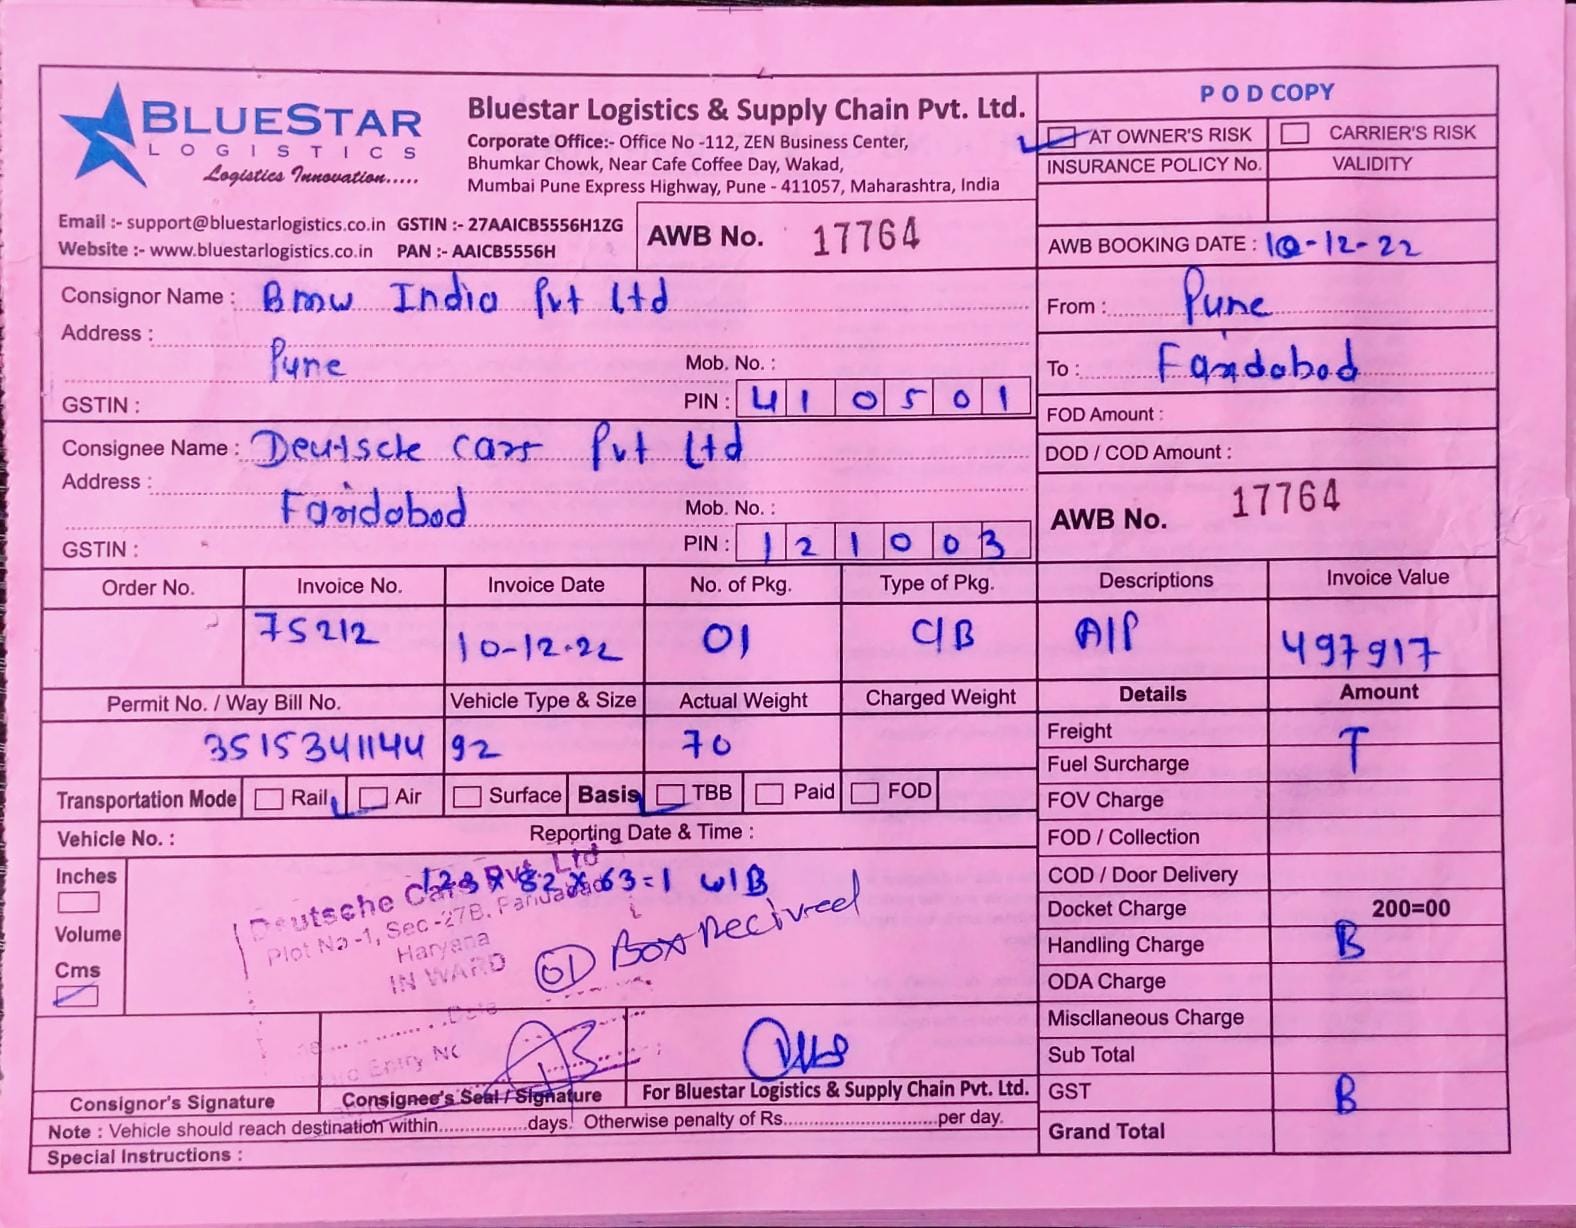 BLUESTAR
LOGISTICS
Logistics Innovation.....
Bluestar Logistics & Supply Chain Pvt. Ltd.
Corporate Office:- Office No -112, ZEN Business Center,
Bhumkar Chowk, Near Cafe Coffee Day, Wakad,
Mumbai Pune Express Highway, Pune - 411057, Maharashtra, India
Email :- support@bluestarlogistics.co.in GSTIN :- 27AAICB5556H1ZG
Website :- www.bluestarlogistics.co.in PAN :- AAICB5556H
AWB No. 17764
POD COPY
AT OWNER'S RISK CARRIER'S RISK
INSURANCE POLICY No. VALIDITY
AWB BOOKING DATE : 10-12-22
Consignor Name : Bmw India Pvt Ltd
Address :
Pune
Mob. No. :
GSTIN : PIN : 410501
From : Pune
To : Faridabad
FOD Amount :
Consignee Name : Deutsche Cars Pvt Ltd
Address :
Faridabad
Mob. No. :
GSTIN : PIN : 121003
DOD / COD Amount :
AWB No. 17764
Order No. Invoice No. Invoice Date No. of Pkg. Type of Pkg. Descriptions Invoice Value
75212 10-12-22 01 C/B A/P 497917
Permit No. / Way Bill No. Vehicle Type & Size Actual Weight Charged Weight Details Amount
3515341144 92 70
Freight T
Fuel Surcharge
Transportation Mode Rail Air Surface Basis TBB Paid FOD
FOV Charge
Vehicle No. : Reporting Date & Time :
FOD / Collection
Inches
Volume
Cms
123 x 82 x 63=1 W/B
Deutsche Cars Pvt. Ltd
Plot No -1, Sec -27B, Faridabad
Haryana
IN WARD
Date
Entry No
01 Box Recivred
COD / Door Delivery
Docket Charge 200=00
Handling Charge B
ODA Charge
Miscllaneous Charge
Sub Total
GST B
Grand Total
Consignor's Signature Consignee's Seal / Signature For Bluestar Logistics & Supply Chain Pvt. Ltd.
Note : Vehicle should reach destination within................days. Otherwise penalty of Rs............................per day.
Special Instructions :